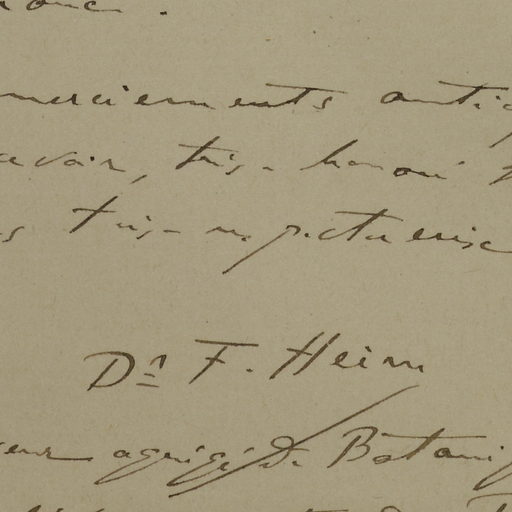 merciements antici
avoir, très-honoré
s très-respectueuse
Dr F. Heim
seur agrégé de Botani